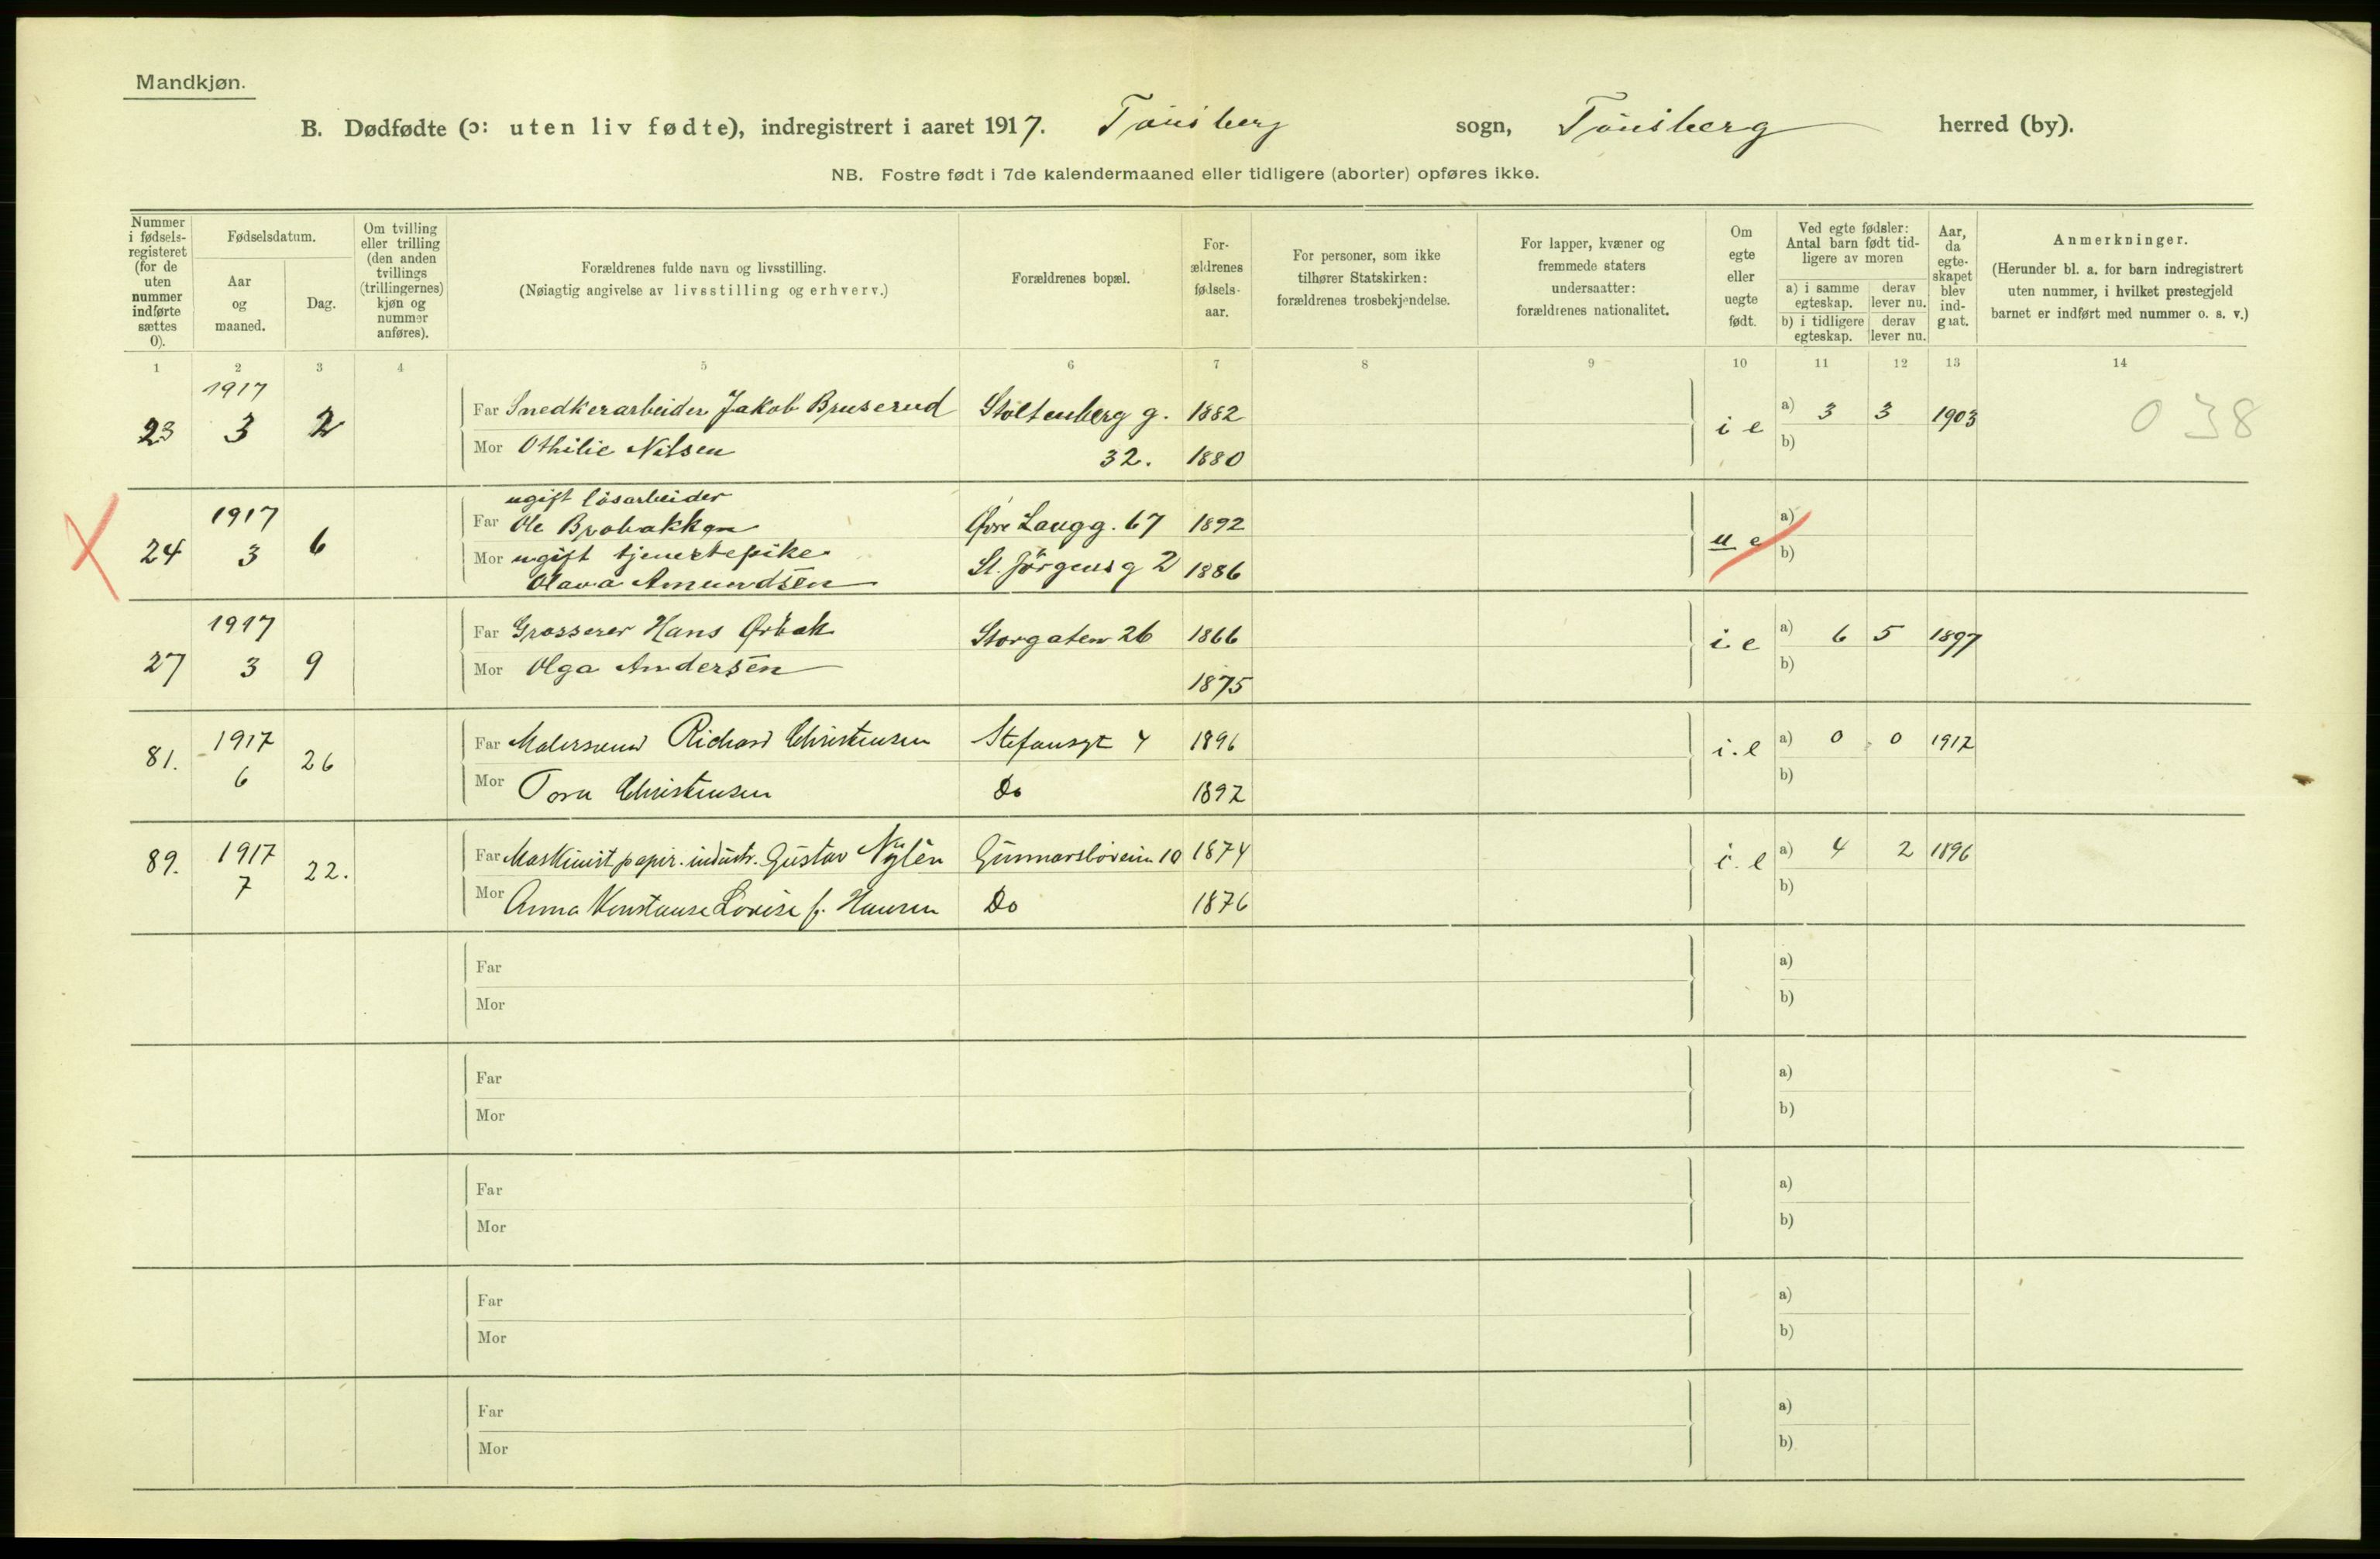 Mandkjøn.
B. Dødfødte (ɔ: uten liv fødte), indregistrert i aaret 1917. Tönsberg sogn, Tönsberg herred (by).
NB. Fostre født i 7de kalendermaaned eller tidligere (aborter) opføres ikke.
Nummer i fødsels-registeret (for de uten nummer indførte sættes 0).
Fødselsdatum.
Aar og maaned.
Dag.
Om tvilling eller trilling (den anden tvillings (trillingernes) kjøn og nummer anføres).
Forældrenes fulde navn og livsstilling.
(Nøiagtig angivelse av livsstilling og erhverv.)
Forældrenes bopæl.
For-ældrenes fødsels-aar.
For personer, som ikke tilhører Statskirken: forældrenes trosbekjendelse.
For lapper, kvæner og fremmede staters undersaatter: forældrenes nationalitet.
Om egte eller uegte født.
Ved egte fødsler: Antal barn født tid-ligere av moren
a) i samme egteskap. derav lever nu.
b) i tidligere egteskap. derav lever nu.
Aar, da egte-skapet blev ind-gaat.
Anmerkninger.
(Herunder bl. a. for barn indregistrert uten nummer, i hvilket prestegjeld barnet er indført med nummer o. s. v.)
1 2 3 4 5 6 7 8 9 10 11 12 13 14
23 1917 3 2 Far Snedkerarbeider Jakob Bruserud Stoltenberg g. 1882 i e a) 3 3 1903 038
Mor Othilie Nilsen 32. 1880 b)
ugift løsarbeider
24 1917 3 6 Far Ole Brobakken Øvre Langg. 67 1892 u e a)
Mor ugift tjenestepike St. Jörgens g 2 1886 b)
Olava Amundsen
27 1917 3 9 Far Grosserer Hans Ørbak Storgaten 26 1866 i e a) 6 5 1897
Mor Olga Andersen 1875 b)
81. 1917 6 26 Far Malersvend Richard Christensen Stefansgt 4 1896 i.e a) 0 0 1917
Mor Tora Christensen Do 1897 b)
89. 1917 7 22. Far Maskinist papir. industr. Gustav Nylén Gunnarsbøveien 10 1874 i.e a) 4 2 1896
Mor Anna Konstanse Lovise f. Hansen Do 1876 b)
Far a)
Mor b)
Far a)
Mor b)
Far a)
Mor b)
Far a)
Mor b)
Far a)
Mor b)